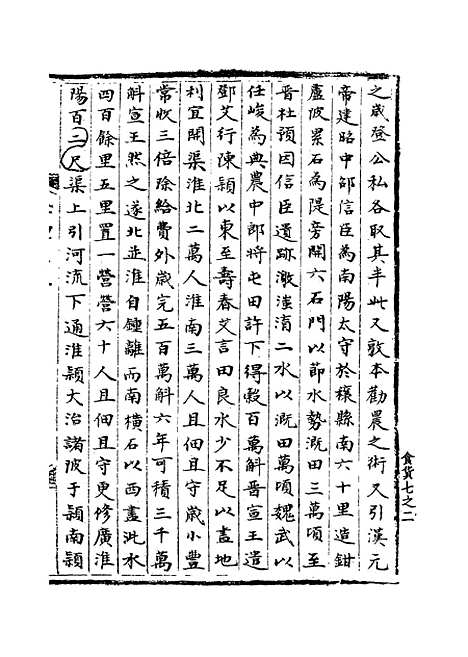 食貨七之二
之歲登公私各取其半此又敦本勸農之術又引漢元
帝建昭中邵信臣為南陽太守於穰縣南六十里造鉗
盧陂累石為隄旁開六石門以節水勢溉田三萬頃至
晉杜預因信臣遺跡激滍淯二水以溉田萬頃魏武以
任峻為典農中郎將屯田許下得穀百萬斛晉宣王遣
鄧艾行陳潁以東至壽春艾言田良水少不足以盡地
利宜開渠淮北二萬人淮南三萬人且佃且守歲小豐
常收三倍除給費外歲完五百萬斛六年可積三千萬
斛宣王然之遂北並淮自鍾離而南橫石以西盡沘水
四百餘里五里置一營營六十人且佃且守更修廣淮
陽百二尺渠上引河流下通淮潁大治諸陂于潁南潁